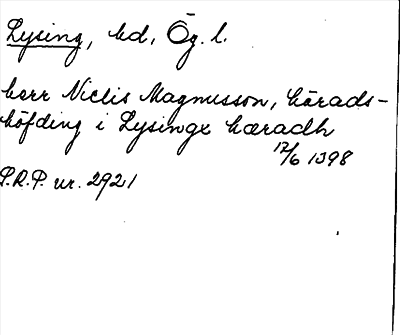 Lysing, hd, Ög. l.
herr Niclis Magnusson, härads-
höfding i Lysinge hæradh
17/6 1398
S.R.P. nr. 2921